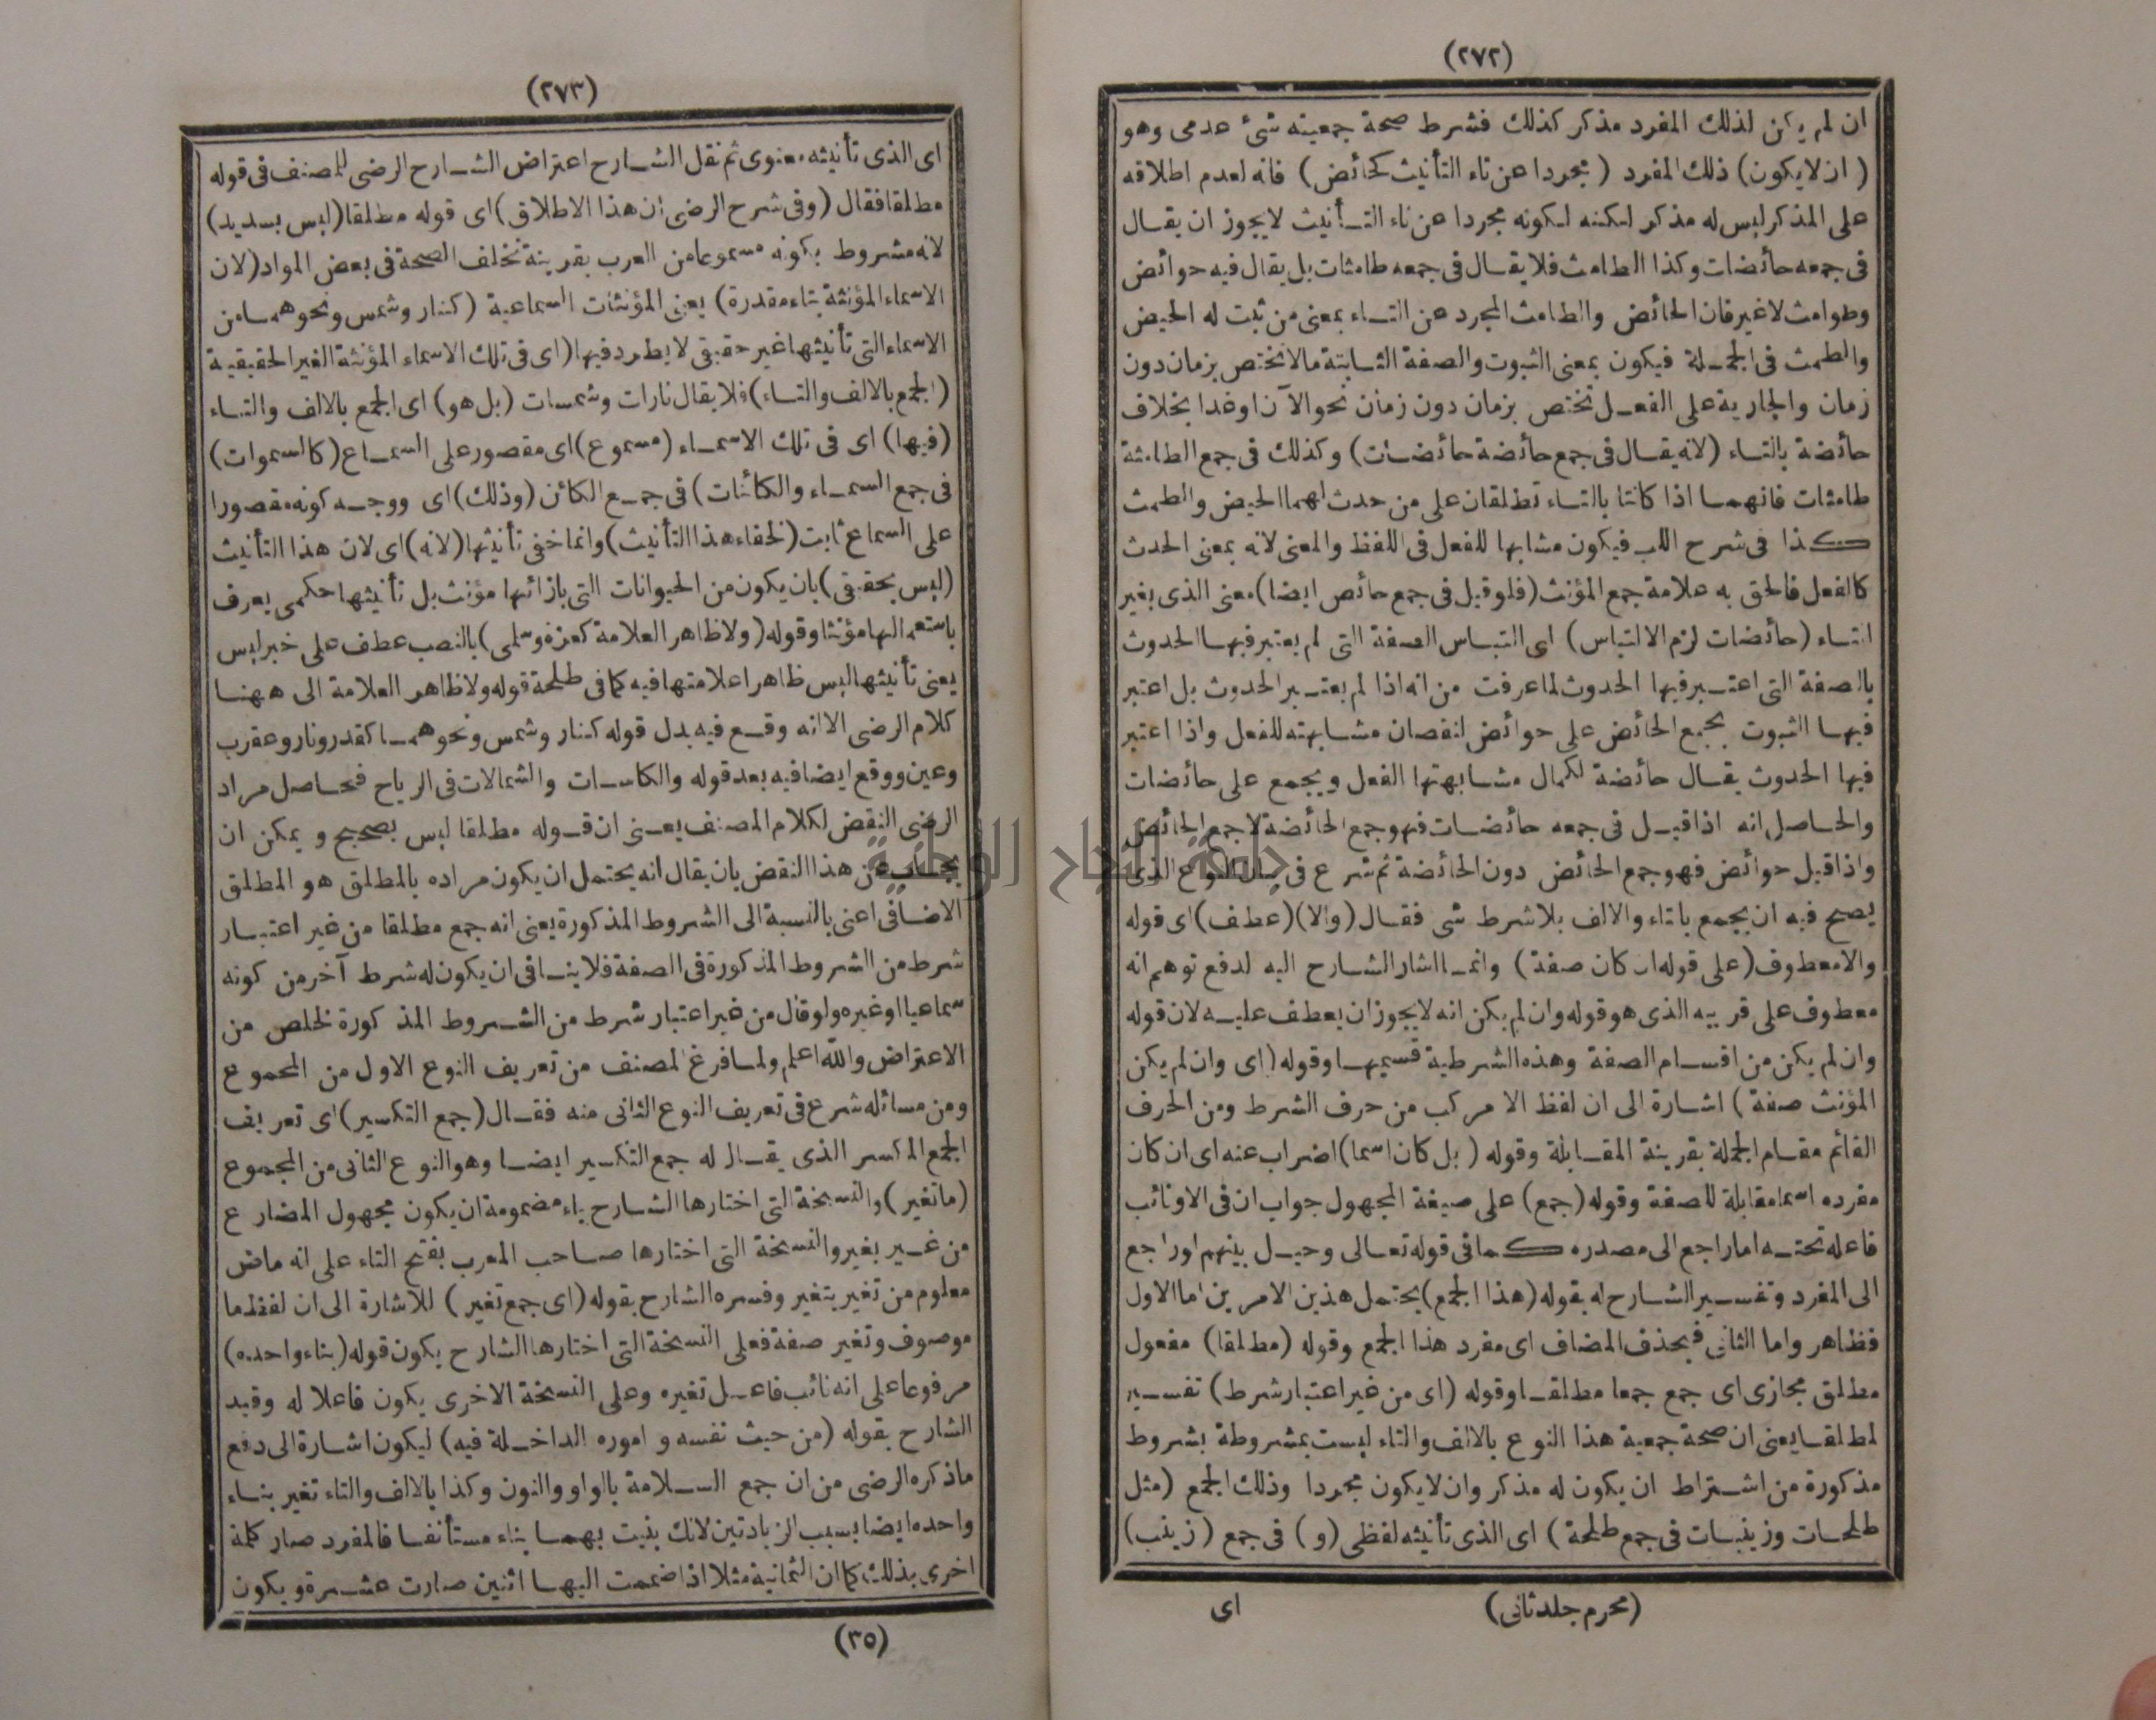 (٢٧٢)
ان لم يكن لذلك المفرد مذكر كذلك فشرط صحة جمعيته شئ عدمى وهو
(ان لا يكون) ذلك المفرد (مجردا عن تاء التأنيث كحائض) فانه لعدم اطلاقه
على المذكر ليس له مذكر لكنه لكونه مجردا عن تاء التأنيث لا يجوز ان يقال
فى جمعه حائضات وكذا الطامث فلا يقال فى جمعه طامثات بل يقال فيه حوائض
وطوامث لا غير فان الحائض والطامث المجرد عن التاء بمعنى من ثبت له الحيض
والطمث فى الجملة فيكون بمعنى الثبوت والصفة الثابتة مالا تختص بزمان دون
زمان والجارية على الفعل تختص بزمان دون زمان نحو الآن او غدا بخلاف
حائضة بالتاء (لانه يقال فى جمع حائضة حائضات) وكذلك فى جمع الطامثة
طامثات فانهما اذا كانتا بالتاء تطلقان على من حدث لهما الحيض والطمث
كذا فى شرح اللب فيكون مشابها للفعل فى اللفظ والمعنى لانه بمعنى الحدث
كالفعل فالحق به علامة جمع المؤنث (فلو قيل فى جمع حائض ايضا) معنى الذى بغير
التاء (حائضات لزم الالتباس) اى التباس الصفة التى لم يعتبر فيها الحدوث
بالصفة التى اعتبر فيها الحدوث لما عرفت من انه اذا لم يعتبر الحدوث بل اعتبر
فيها الثبوت يجمع الحائض على حوائض لنقصان مشابهته للفعل واذا اعتبر
فيها الحدوث يقال حائضة لكمال مشابهتها الفعل ويجمع على حائضات
والحاصل انه اذا قيل فى جمعه حائضات فهو جمع الحائضة لا جمع الحائض
واذا قيل حوائض فهو جمع الحائض دون الحائضة ثم شرع فى بيان النوع الذى
يصح فيه ان يجمع بالتاء والالف بلا شرط شئ فقال (والا) (عطف) اى قوله
والا معطوف (على قوله ان كان صفة) وانما اشار الشارح اليه لدفع توهم انه
معطوف على قريبه الذى هو قوله وان لم يكن انه لا يجوز ان يعطف عليه لان قوله
وان لم يكن من اقسام الصفة وهذه الشرطية قسيمها وقوله (اى وان لم يكن
المؤنث صفة) اشارة الى ان لفظ الا مركب من حرف الشرط ومن الحرف
القائم مقام الجملة بقرينة المقابلة وقوله (بل كان اسما) اضراب عنه اى ان كان
مفرده اسما مقابلة للصفة وقوله (جمع) على صيغة المجهول جواب ان فى الا ونائب
فاعله تحته اما راجع الى مصدره كما فى قوله تعالى وحيل بينهم او راجع
الى المفرد وتفسير الشارح له بقوله (هذا الجمع) يحتمل هذين الامرين اما الاول
فظاهر واما الثانى فبحذف المضاف اى مفرد هذا الجمع وقوله (مطلقا) مفعول
مطلق مجازى اى جمع جمعا مطلقا وقوله (اى من غير اعتبار شرط) تفسير
لمطلقا يعنى ان صحة جمعية هذا النوع بالالف والتاء ليست بمشروطة بشروط
مذكورة من اشتراط ان يكون له مذكر وان لا يكون مجردا وذلك الجمع (مثل
طلحات وزينبات فى جمع طلحة) اى الذى تأنيثه لفظى (و) فى جمع (زينب)
(محرم جلد ثانى) اى
(٢٧٣)
اى الذى تأنيثه معنوى ثم نقل الشارح اعتراض الشارح الرضى للمصنف فى قوله
مطلقا فقال (وفى شرح الرضى ان هذا الاطلاق) اى قوله مطلقا (ليس بسديد)
لانه مشروط بكونه مسموعا من العرب بقرينة تخلف الصحة فى بعض المواد (لان
الاسماء المؤنثة بتاء مقدرة) يعنى المؤنثات السماعية (كنار وشمس ونحوهما من
الاسماء التى تأنيثها غير حقيقى لا يطرد فيها) اى فى تلك الاسماء المؤنثة الغير الحقيقية
(الجمع بالالف والتاء) فلا يقال نارات وشمسات (بل هو) اى الجمع بالالف والتاء
(فيها) اى فى تلك الاسماء (مسموع) اى مقصور على السماع (كالسموات)
فى جمع السماء والكائنات) فى جمع الكائن (وذلك) اى ووجه كونه مقصورا
على السماع ثابت (لخفاء هذا التأنيث) وانما خفى تأنيثها (لانه) اى لان هذا التأنيث
(ليس بحقيقى) بان يكون من الحيوانات التى بازائها مؤنث بل تأنيثها حكمى يعرف
باستعمالها مؤنثا وقوله (ولا ظاهر العلامة كعزة وسلمى) بالنصب عطف على خبر ليس
يعنى تأنيثها ليس ظاهرا علامتها فيه كما فى طلحة قوله ولا ظاهر العلامة الى ههنا
كلام الرضى الا انه وقع فيه بدل قوله كنار وشمس ونحوهما كقدر ونار وعقرب
وعين ووقع ايضا فيه بعد قوله والكاسات والشمالات فى الرياح فحاصل مراد
الرضى النقض لكلام المصنف يعنى ان قوله مطلقا ليس بصحيح ويمكن ان
يجاب عن هذا النقض بان يقال انه يحتمل ان يكون مراده بالمطلق هو المطلق
الاضافى اعنى بالنسبة الى الشروط المذكورة يعنى انه جمع مطلقا من غير اعتبار
شرط من الشروط المذكورة فى الصفة فلا ينافى ان يكون له شرط آخر من كونه
سماعيا او غيره ولو قال من غير اعتبار شرط من الشروط المذكورة لخلص من
الاعتراض والله اعلم ولما فرغ المصنف من تعريف النوع الاول من المجموع
ومن مسائله شرع فى تعريف النوع الثانى منه فقال (جمع التكسير) اى تعريف
الجمع المكسر الذى يقال له جمع التكسير ايضا وهو النوع الثانى من المجموع
(ما تغير) والنسخة التى اختارها الشارح بتاء مضمومة ان يكون مجهول المضارع
من غير يغير والنسخة التى اختارها صاحب المعرب بفتح التاء على انه ماض
معلوم من تغير يتغير وفسره الشارح بقوله (اى جمع تغير) للاشارة الى ان لفظ ما
موصوف وتغير صفة فعلى النسخة التى اختارها الشارح يكون قوله (بناء واحده)
مرفوعا على انه نائب فاعل تغيره وعلى النسخة الاخرى يكون فاعلا له وقيد
الشارح بقوله (من حيث نفسه و اموره الداخلة فيه) ليكون اشارة الى دفع
ما ذكره الرضى من ان جمع السلامة بالواو والنون وكذا بالالف والتاء تغير بناء
واحده ايضا بسبب الزيادتين لانك بنيت بهما بناء مستأنفا فالمفرد صار كلمة
اخرى بذلك كما ان الثمانية مثلا اذا ضممت اليها اثنين صارت عشرة ويكون
(٣٥)
جامعة النجاح الوطنية